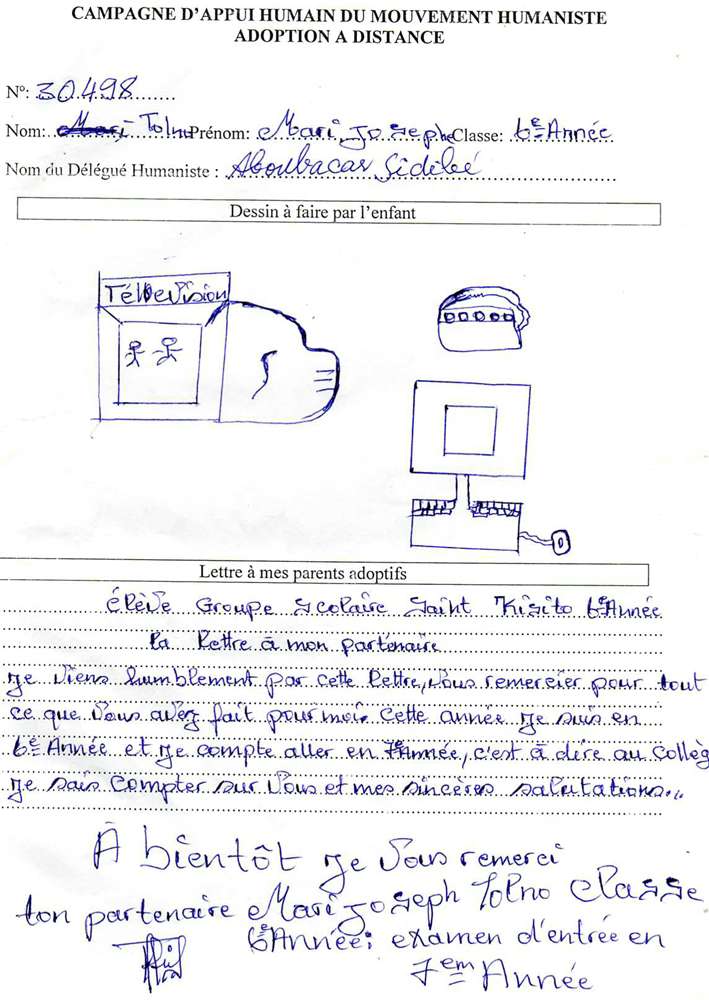 CAMPAGNE D'APPUI HUMAIN DU MOUVEMENT HUMANISTE
ADOPTION A DISTANCE
N°: 30498
Nom: Tolno Prénom: Mari Josephe Classe: 6e Année
Nom du Délégué Humaniste : Aboubacar Sidibé
Dessin à faire par l'enfant
Télévision
Lettre à mes parents adoptifs
élève Groupe Scolaire Saint Kisito 6e Année
la lettre à mon partenaire
je viens humblement par cette lettre, vous remercier pour tout
ce que vous avez fait pour moi. Cette année je suis en
6e Année et je compte aller en 7e Année, c'est à dire au Collèg
je sais compter sur vous et mes sincères salutations...
À bientôt je vous remerci
ton partenaire Mari Joseph Tolno Classe
6e Année; examen d'entrée en
7em Année